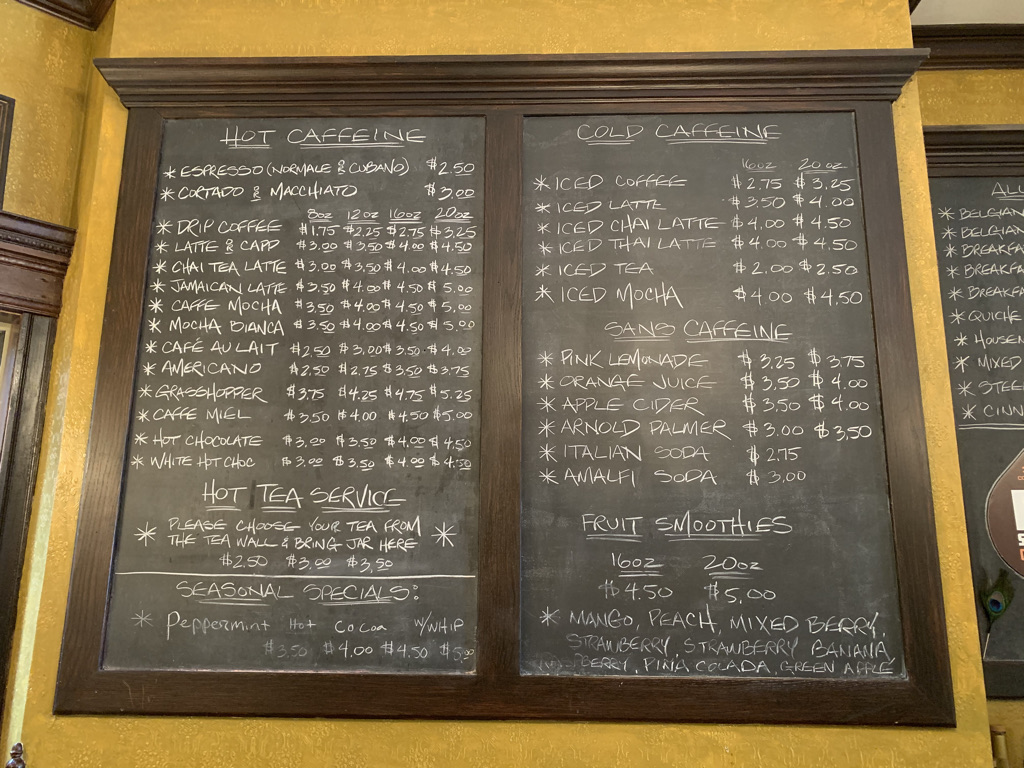 HOT CAFFEINE
* ESPRESSO (NORMALE & CUBANO) $2.50
* CORTADO & MACCHIATO $3.00
8oz 12oz 16oz 20oz
* DRIP COFFEE $1.75 $2.25 $2.75 $3.25
* LATTE & CAPP $3.00 $3.50 $4.00 $4.50
* CHAI TEA LATTE $3.00 $3.50 $4.00 $4.50
* JAMAICAN LATTE $3.50 $4.00 $4.50 $5.00
* CAFFE MOCHA $3.50 $4.00 $4.50 $5.00
* MOCHA BIANCA $3.50 $4.00 $4.50 $5.00
* CAFÉ AU LAIT $2.50 $3.00 $3.50 $4.00
* AMERICANO $2.50 $2.75 $3.50 $3.75
* GRASSHOPPER $3.75 $4.25 $4.75 $5.25
* CAFFE MIEL $3.50 $4.00 $4.50 $5.00
* HOT CHOCOLATE $3.00 $3.50 $4.00 $4.50
* WHITE HOT CHOC $3.00 $3.50 $4.00 $4.50
HOT TEA SERVICE
* PLEASE CHOOSE YOUR TEA FROM *
THE TEA WALL & BRING JAR HERE
$2.50 $3.00 $3.50
SEASONAL SPECIALS:
* Peppermint Hot Cocoa W/WHIP
$3.50 $4.00 $4.50 $5.00
COLD CAFFEINE
16oz 20oz
* ICED COFFEE $2.75 $3.25
* ICED LATTE $3.50 $4.00
* ICED CHAI LATTE $4.00 $4.50
* ICED THAI LATTE $4.00 $4.50
* ICED TEA $2.00 $2.50
* ICED MOCHA $4.00 $4.50
SANS CAFFEINE
* PINK LEMONADE $3.25 $3.75
* ORANGE JUICE $3.50 $4.00
* APPLE CIDER $3.50 $4.00
* ARNOLD PALMER $3.00 $3.50
* ITALIAN SODA $2.75
* AMALFI SODA $3.00
FRUIT SMOOTHIES
16oz 20oz
$4.50 $5.00
* MANGO, PEACH, MIXED BERRY,
STRAWBERRY, STRAWBERRY BANANA
BERRY, PINA COLADA, GREEN APPLE
ALL
* BELGIAN
* BELGIAN
* BREAKFA
* BREAKFA
* BREAKFA
* QUICHE
* HOUSEM
* MIXED
* STEE
* CINN